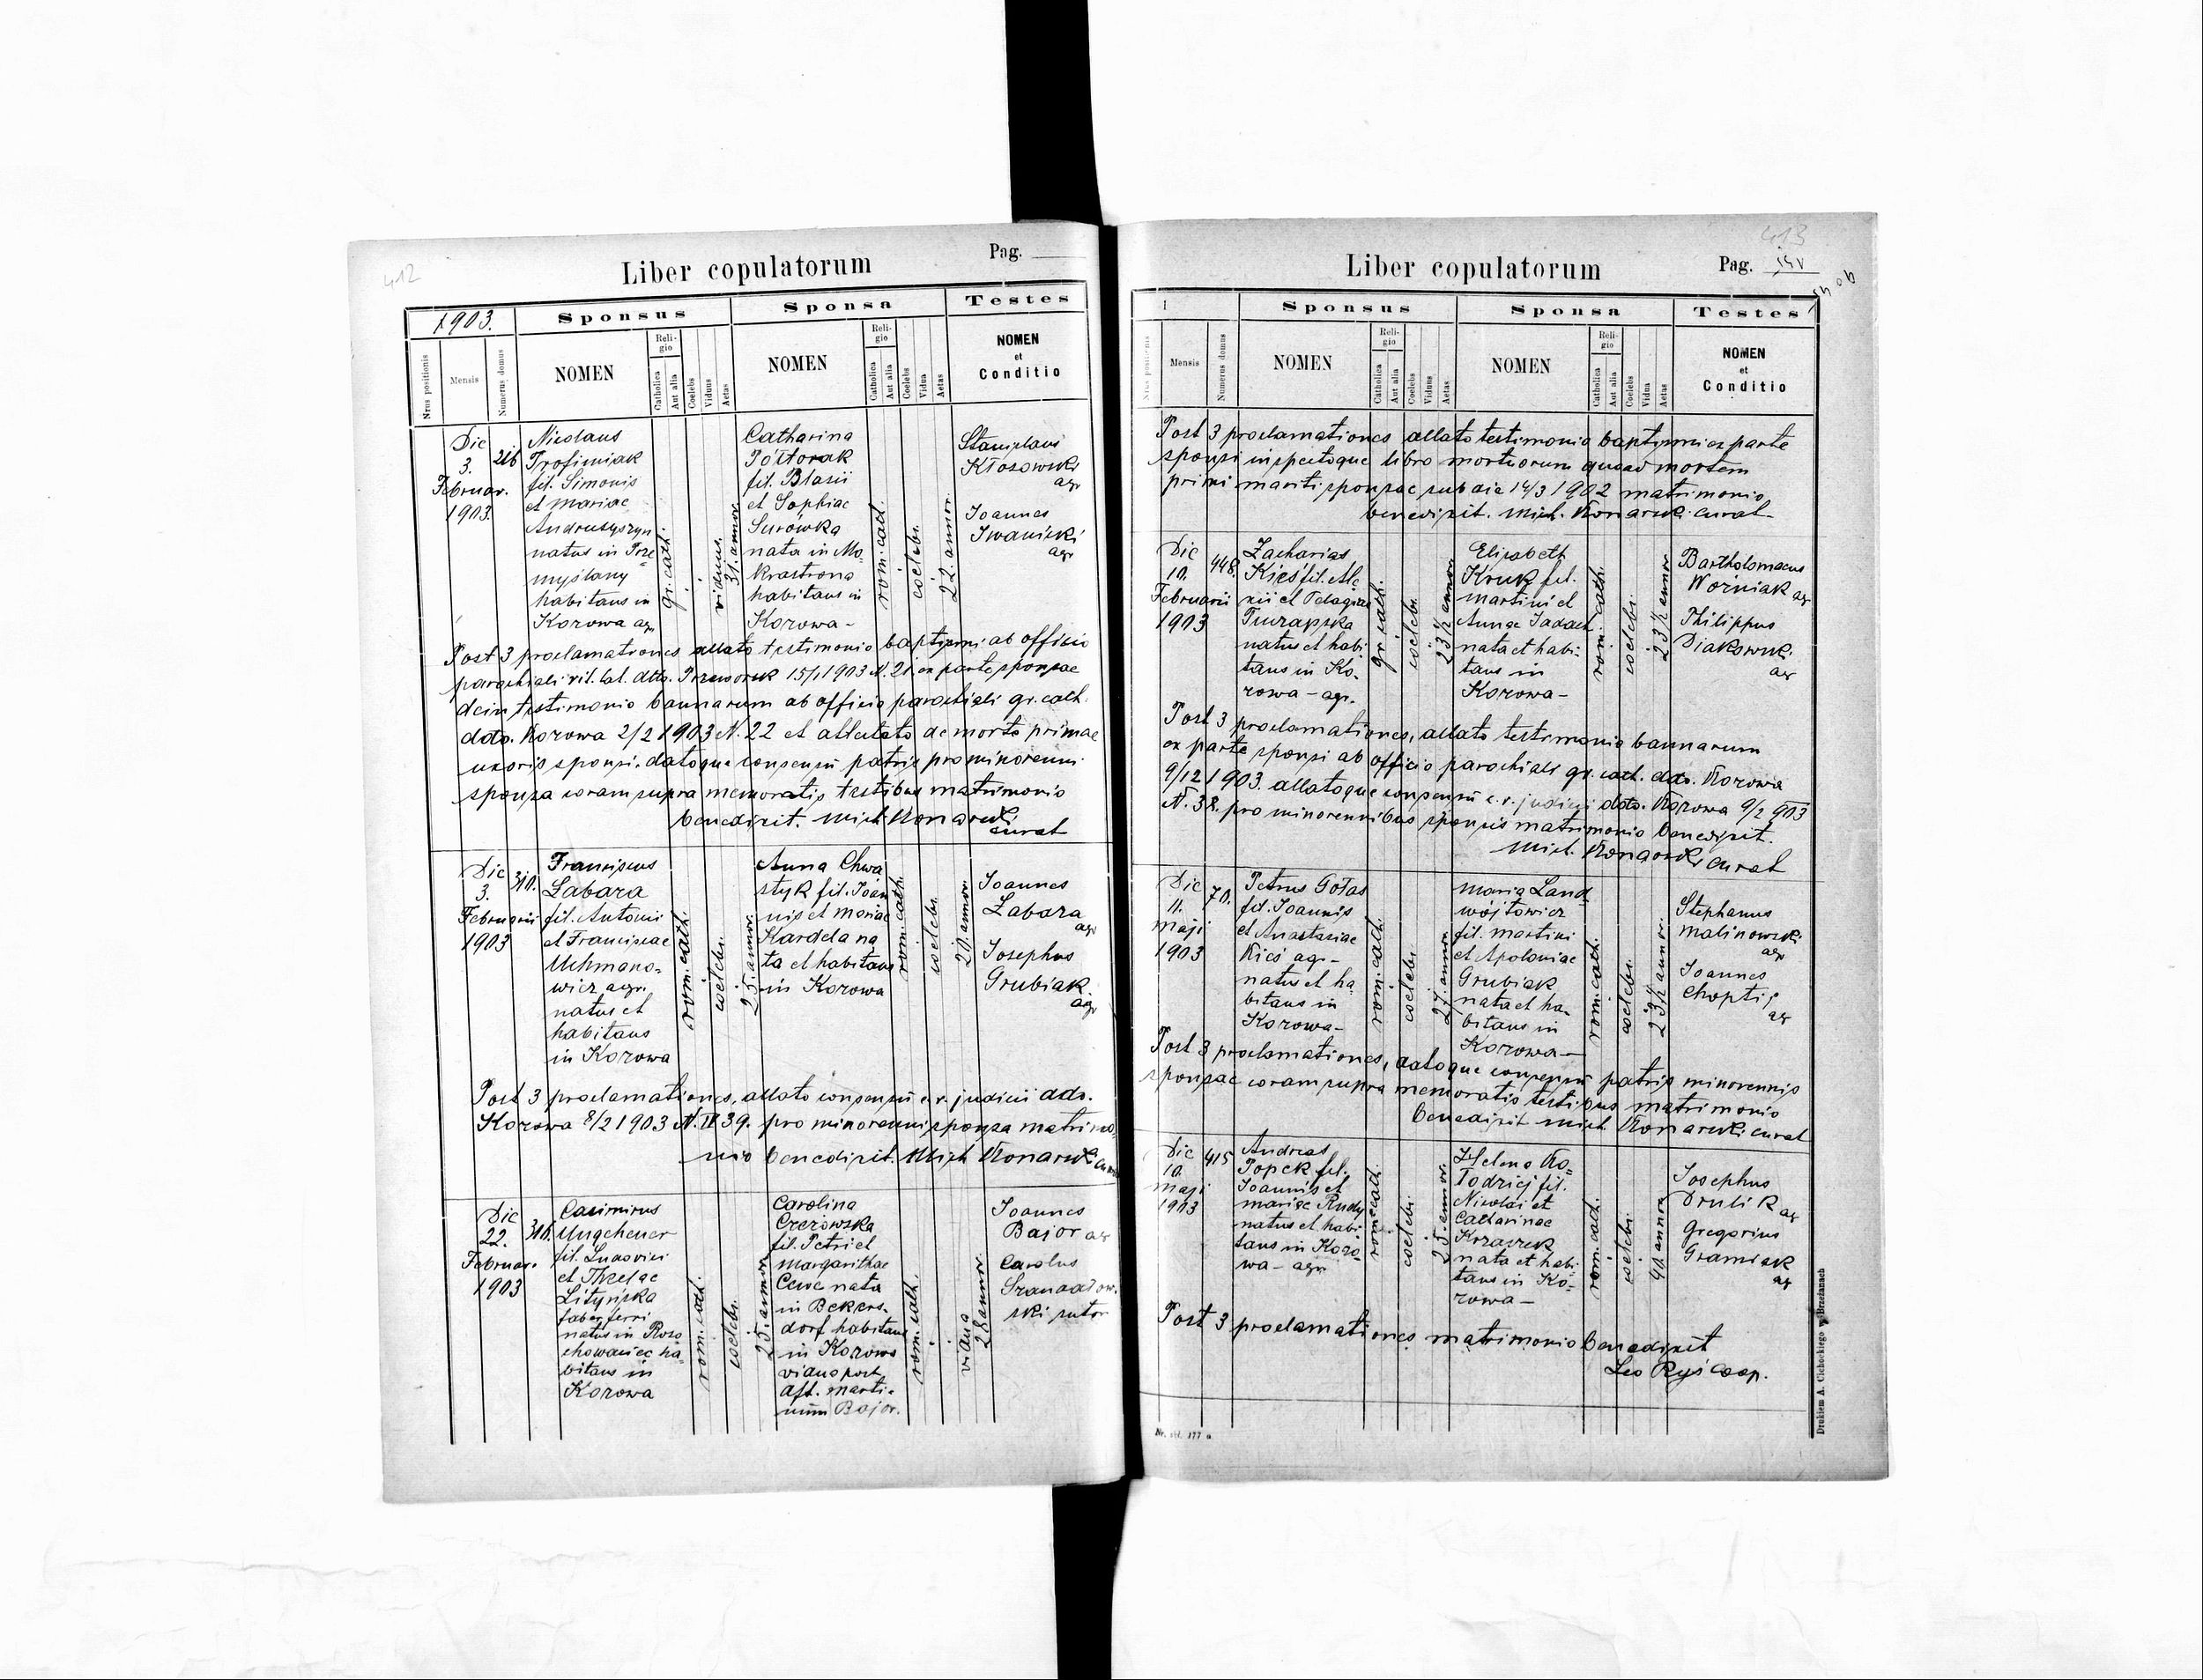 412
Liber copulatorum
Pag.
1903.
Sponsus
Sponsa
Testes
Nrus positionis
Mensis
Numerus domus
NOMEN
Reli-
gio
Catholica
Aut alia
Coelebs
Viduus
Aetas
NOMEN
Reli-
gio
Catholica
Aut alia
Coelebs
Vidua
Aetas
NOMEN
et
Conditio
Die
3.
Februar.
1903.
216
Nicolaus
Trofimiak
fil. Simonis
et Mariae
Andruszyszyn
natus in Prze=
myślany
habitans in
Korowa agr.
gr. cath.
viduus.
31. annor.
Catharina
Półtorak
fil. Blasii
et Sophiae
Surówka
nata in Mo=
krastrona
habitans in
Korowa -
rom. cath.
coelebs.
22. annor.
Stanislaus
Kłosowski
agr
Joannes
Iwanicki
agr
Post 3 proclamationes allato testimonio baptismi ab officio
parochiali rit. lat. ddto. Przeworsk 15/1 1903 N. 21. ex parte sponsae
dein testimonio bannarum ab officio parochiali gr. cath.
ddto. Korowa 2/2 1903 N. 22 et attestato de morte primae
uxoris sponsi. datoque consensu patris pro minorenni
sponsa coram supra memoratis testibus matrimonio
benedixit. Mich. Konarski
curat
Die
3.
Februarii
1903
310.
Franciscus
Łabara
fil. Antonii
et Franciscae
Uchmano=
wicz agr.
natus et
habitans
in Korowa
rom. cath.
coelebs.
25. annor.
Anna Chwa
styk fil. Joan
nis et Mariae
Kardela na
ta et habitans
in Korowa
rom. cath.
coelebs.
20. annor.
Joannes
Łabara
agr
Josephus
Grubiak
agr
Post 3 proclamationes, allato consensu c. r. judicii ddto.
Korowa 8/2 1903 N. II 39. pro minorenni sponsa matrimo=
nio benedixit. Mich Konarski
Die
22.
Februar.
1903
316.
Casimirus
Ungeheuer
fil. Ludovici
et Theclae
Lityńska
faber ferri
natus in Roso
chowaniec ha=
bitans in
Korowa
rom. cath.
coelebs.
25. annor.
Carolina
Czerzowska
fil. Petri et
Margarithae
Cewe nata
in Bekers=
dorf habitans
in Korowa
vidua post
dft. Marti=
num Bajor.
rom. cath.
vidua
28 annor.
Joannes
Bajor agr
Carolus
ski sutor
413
Liber copulatorum
Pag.
Sponsus
Sponsa
Testes
Nrus positionis
Mensis
Numerus domus
NOMEN
Reli-
gio
Catholica
Aut alia
Coelebs
Viduus
Aetas
NOMEN
Reli-
gio
Catholica
Aut alia
Coelebs
Vidua
Aetas
NOMEN
et
Conditio
Post 3 proclamationes allato testimonio baptismi ex parte
sponsi inspectoque libro mortuorum quoad mortem
primi mariti sponsae sub die 14/3 1902 matrimonio
benedixit. Mich. Konarski curat
Die
10.
Februarii
1903
448.
Zacharias
Kieś fil. Ale
xii et Pelagiae
Turapska
natus et habi
tans in Ko=
rowa - agr.
gr. cath.
coelebs.
23½ annor
Elisabeth
Kruk fil.
Martini et
Annae Jadach
nata et habi=
tans in
Korowa -
rom. cath.
coelebs.
23½ annor
Bartholomaeus
Woźniak agr
Philippus
Diakowski
agr
Post 3 proclamationes, allato testimonio bannarum
ex parte sponsi ab officio parochiali gr. cath. ddto. Korowa
9/12 1903. allatoque consensu c. r. judicii ddto. Korowa 9/2 903
N. 38. pro minorennibus sponsis matrimonio benedixit.
Mich. Konarski curat
Die
11.
Maji
1903
70.
Petrus Gołas
fil. Joannis
et Anastasiae
Kieś agr -
natus et ha
bitans in
Korowa -
rom. cath.
coelebs.
27. annor
Maria Land
wójtowicz
fil. Martini
et Apoloniae
Grubiak
nata et ha=
bitans in
Korowa -
rom. cath.
coelebs.
23½ annor.
Stephanus
Malinowski
agr
Joannes
Choptij
agr
Post 3 proclamationes, datoque consensu patris minorennis
sponsae coram supra memoratis testibus matrimonio
benedixit Mich Konarski curat
Die
10.
Maji
1903
415
Andreas
Popek fil.
Joannis et
Mariae Rudy
natus et habi=
tans in Koro
wa - agr.
rom. cath.
coelebs.
25. annor.
Helena Ko=
łodziej fil.
Nicolai et
Catharinae
Krzaszek
nata et habi
tans in Ko=
rowa -
rom. cath.
coelebs.
40 annor
Josephus
Drulik agr
Gregorius
Gramiak
agr
Post 3 proclamationes matrimonio benedixit
Leo Ryś coop.
Drukiem A. Cichockiego w Brzeżanach
177 a